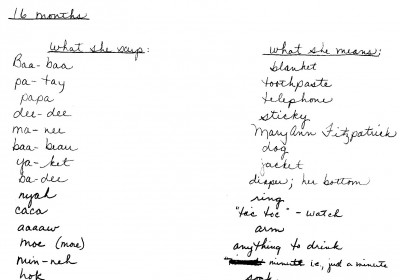 16 months
What she says: What she means:
Baa-baa blanket
pa-tay toothpaste
papa telephone
dee-dee sticky
ma-nee MaryAnn Fitzpatrick
baa-beau dog
ya-ket jacket
ba-dee diaper; her bottom
nyah ring
caca "tic toc" - watch
aaaaw arm
moe (moe) anything to drink
min-neh minute i.e., just a minute
hok sock